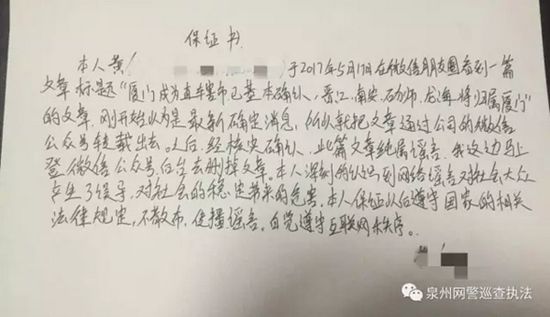 保证书
本人黄 于2017年5月17日在微信朋友圈看到一篇
文章标题"厦门成为直辖市已基本确认,晋江、南安、石狮、龙海将归属厦门"
的文章,刚开始以为是最新确定消息,所以就把文章通过公司的微信
公众号转载出去。以后经核实确认,此篇文章纯属谣言。我这边马上
登微信公众号后台去删掉文章。本人深刻的认识到网络谣言对社会大众
产生了误导,对社会的稳定带来的危害。本人保证以后遵守国家的相关
法律规定,不散布,传播谣言。自觉遵守互联网秩序。
泉州网警巡查执法